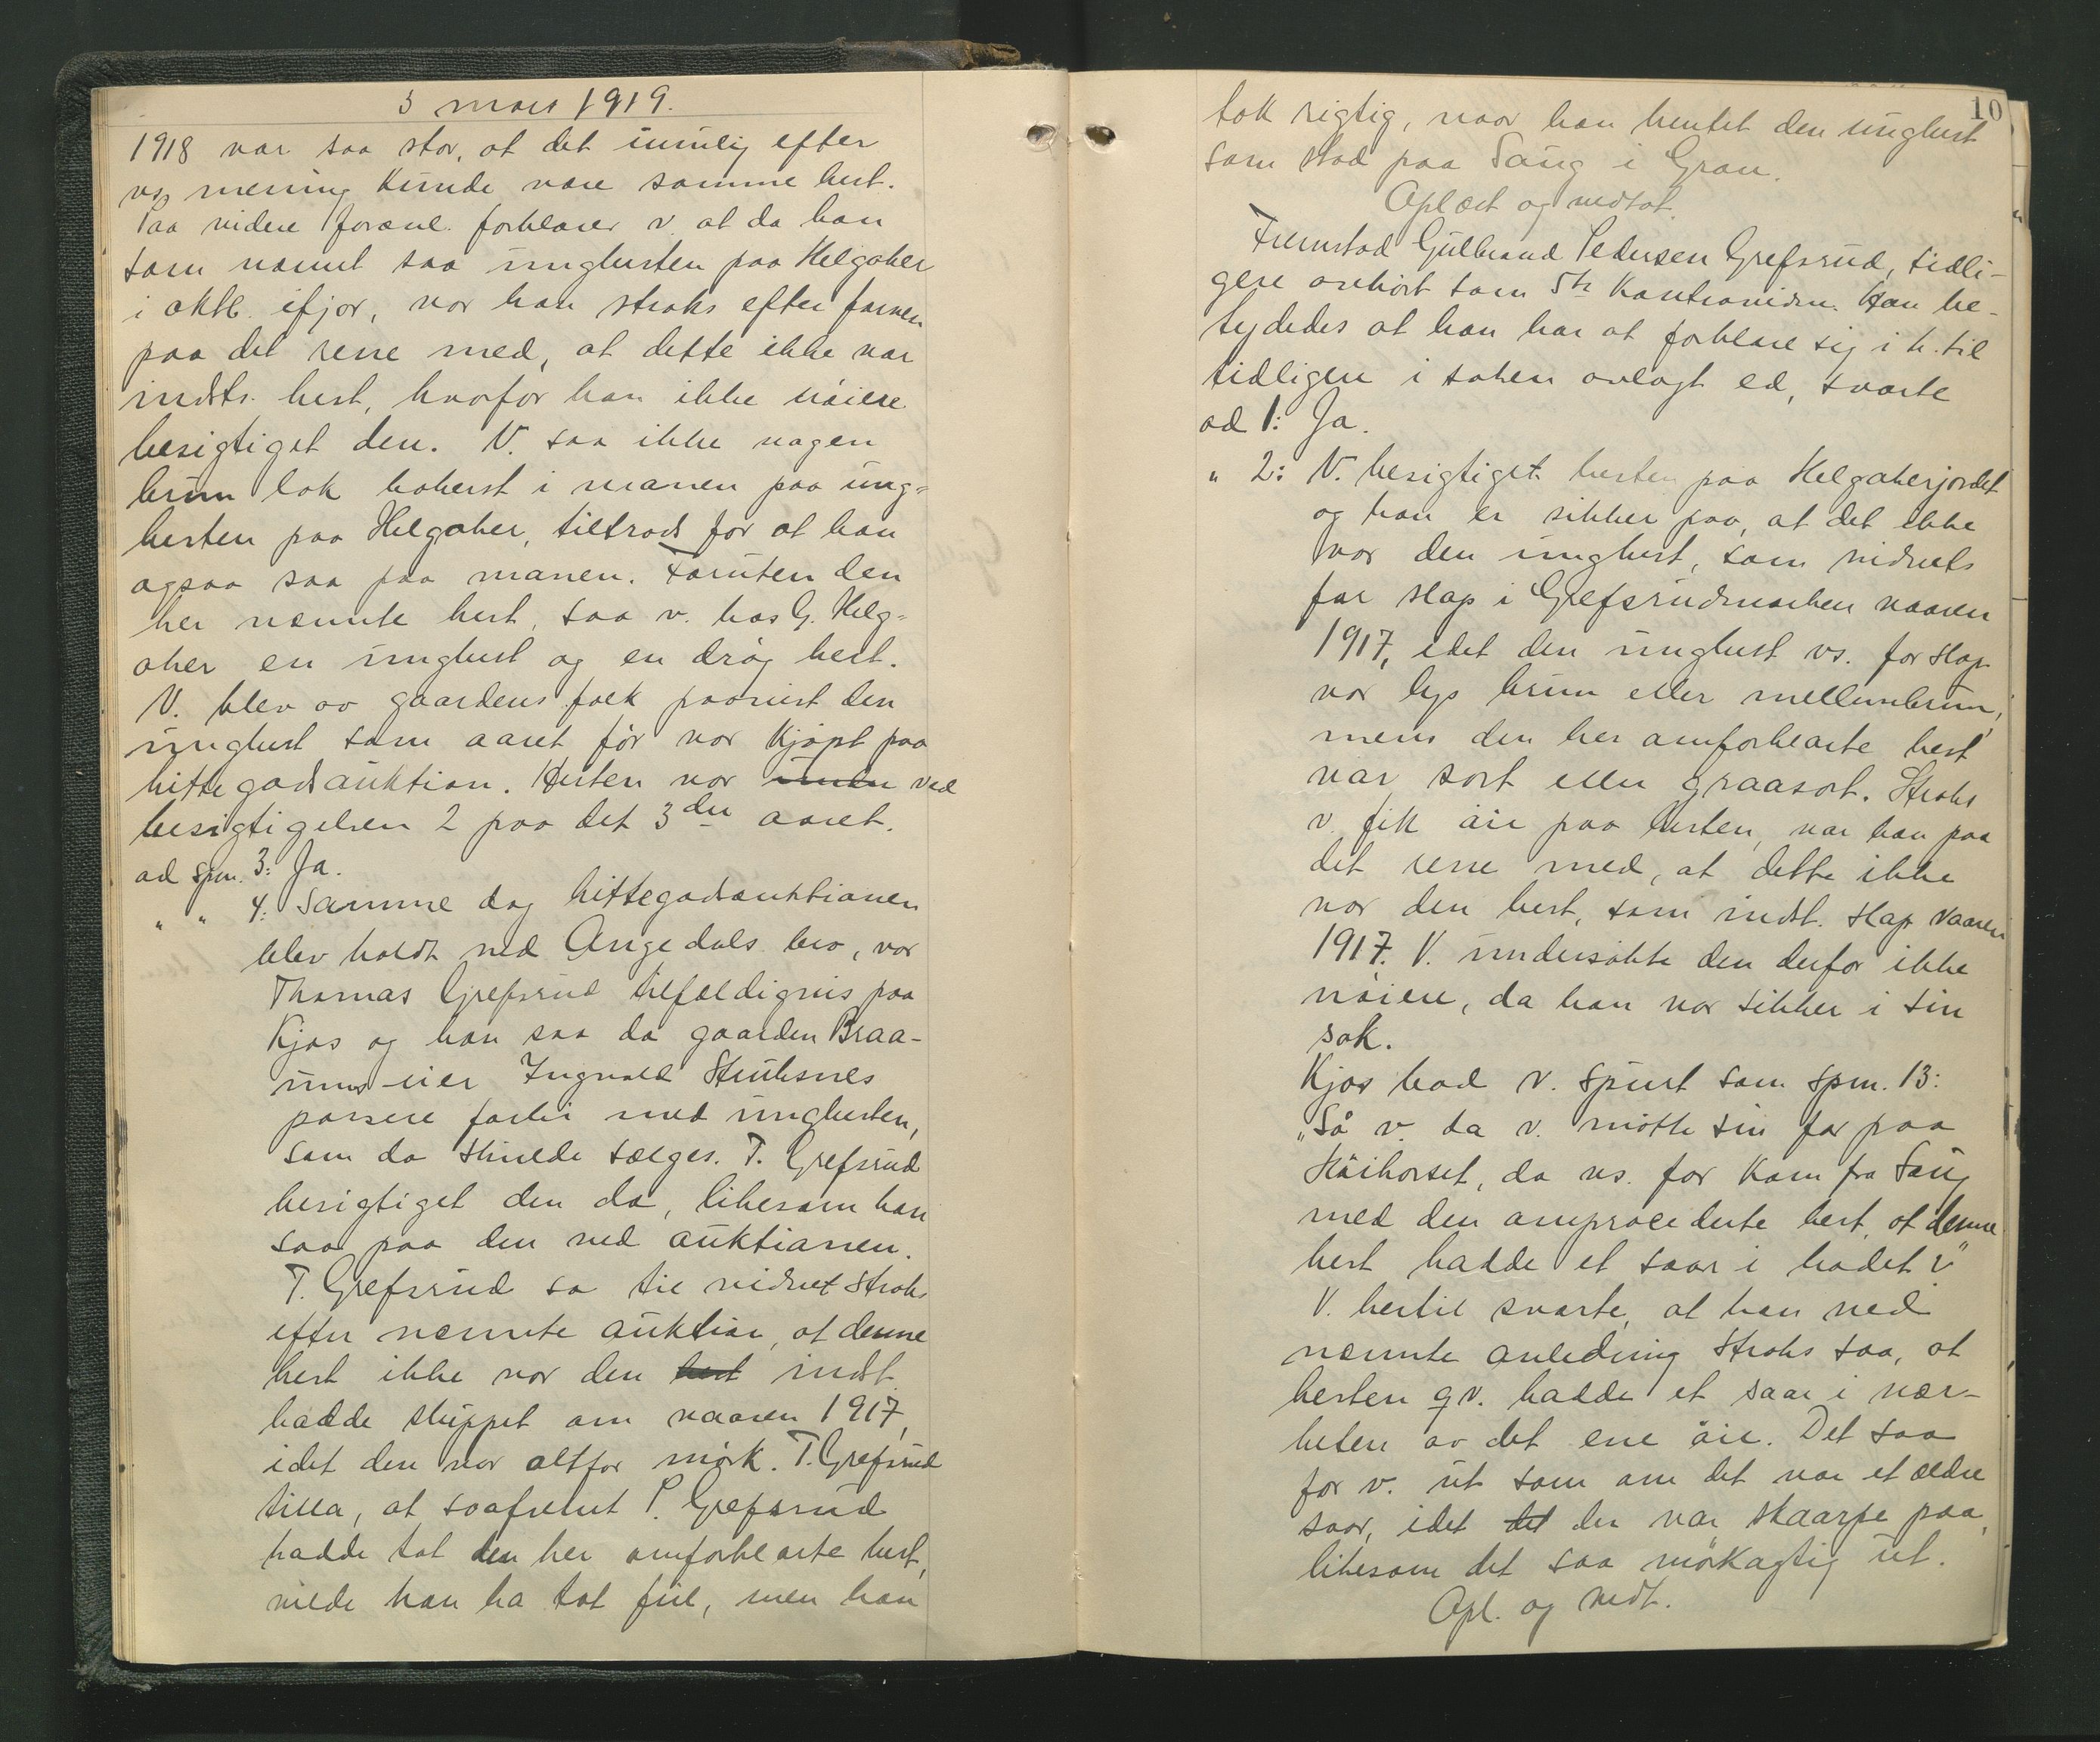 3 mars 1919.
1918 var saa stor, at det umulig efter
vs. mening kunde være samme hest.
Paa videre foranl. forklarer v. at da han
som nævnt saa unghesten paa Helgaker
i oktb. ifjor, var han straks efter farven
paa det rene med, at dette ikke var
indsts. hest, hvorfor han ikke nöiere
besigtiget den. V. saa ikke nogen
brun lok bakerst i manen paa ung=
hesten paa Helgaker, tiltrods for at han
ogsaa saa paa manen. Foruten den
her nævnte hest, saa v. hos G. Helg=
aker en unghest og en drög hest.
V. blev av gaardens folk paavist den
unghest som aaret för var kjöpt paa
hittegodsauktion. Hesten var ved
besigtigelsen 2 paa det 3die aaret.
ad spm. 3: Ja.
" " 4: Samme dag hittegodsauktionen
blev holdt ved Angedals bro, var
Thomas Grefsrud tilfældigvis paa
Kjos og han saa da gaarden Braa-
uns eier Ingvald Stuksnes
passere forbi med unghesten,
som da skulde sælges. T. Grefsrud
besigtiget den da, likesom han
saa paa den ved auktionen.
T. Grefsrud sa til vidnet straks
efter nævnte auktion, at denne
hest ikke var den hest indst.
hadde sluppet om vaaren 1917,
idet den var altfor mörk. T. Grefsrud
tilla, at saafremt P. Grefsrud
hadde tat den her omforklarte hest,
vilde han ha tat feil, men han
10
tok rigtig, naar han hentet den unghest
som stod paa Saug i Gran.
Oplæst og vedtat.
Fremstod Gulbrand Pedersen Grefsrud, tidli-
gere avhört som 5te kontravidne. Han be-
tydedes at han har at forklare sig i h. til
tidligere i saken avlagt ed, svarte
ad 1: Ja.
" 2: V. besigtiget hesten paa Helgakerjordet
og han er sikker paa, at det ikke
var den unghest, som vidnets
far slap i Grefsrudmarken vaaren
1917, idet den unghest vs. far slap
var lys brun eller mellembrun,
mens den her omforklarte hest
var sort eller graasort. Straks
v. fik öie paa hesten, var han paa
det rene med, at dette ikke
var den hest, som indst. slap vaaren
1917. V. undersökte den derfor ikke
nöiere, da han var sikker i sin
sak.
Kjos bad v. spurt som spm. 13:
"Så v. da v. mötte sin far paa
Höikorset, da vs. far kom fra Saug
med den omprocederte hest, at denne
hest hadde et saar i hodet?"
V. hertil svarte, at han ved
nævnte anledning straks saa, at
hesten qv. hadde et saar i nær-
heten av det ene öie. Det saa
for v. ut som om det var et ældre
saar, idet det der var skaarpe paa,
likesom det saa mörkagtig ut.
Opl. og vedt.